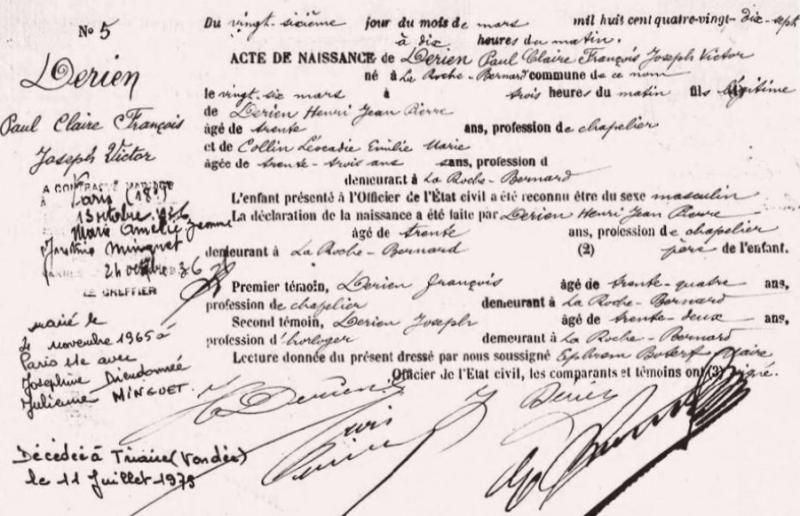 N° 5
Derien
Paul Claire François
Joseph Victor
A CONTRACTÉ MARIAGE
à Paris (18e)
13 octobre
Marie Amélie Jeanne
Minguet
24 octobre 36
LE GREFFIER
marié le
2 novembre 1965 à
Paris 11e avec
Josephine Dieudonnée
Julienne MINGUET.
Décédé à Triaize (Vendée)
le 11 Juillet 1979
Du vingt-sixième jour du mois de mars mil huit cent quatre-vingt-dix-sept
à dix heures du matin.
ACTE DE NAISSANCE de Derien Paul Claire François Joseph Victor
né à La Roche-Bernard commune de ce nom
le vingt-six mars à trois heures du matin fils légitime
de Derien Henri Jean Pierre
âgé de trente ans, profession de chapelier
et de Collin Léocadie Emilie Marie
âgée de trente-trois ans sans, profession d
demeurant à La Roche-Bernard
L'enfant présenté à l'Officier de l'État civil a été reconnu être du sexe masculin
La déclaration de la naissance a été faite par Derien Henri Jean Pierre
âgé de trente ans, profession de chapelier
demeurant à La Roche-Bernard (2) père de l'enfant.
Premier témoin, Derien François âgé de trente-quatre ans,
profession de chapelier demeurant à La Roche-Bernard
Second témoin, Derien Joseph âgé de trente-deux ans,
profession d'horloger demeurant à La Roche-Bernard
Lecture donnée du présent dressé par nous soussigné Ephrem Boterf Maire
Officier de l'Etat civil, les comparants et témoins ont (3) signé.
H Derien
J Derien